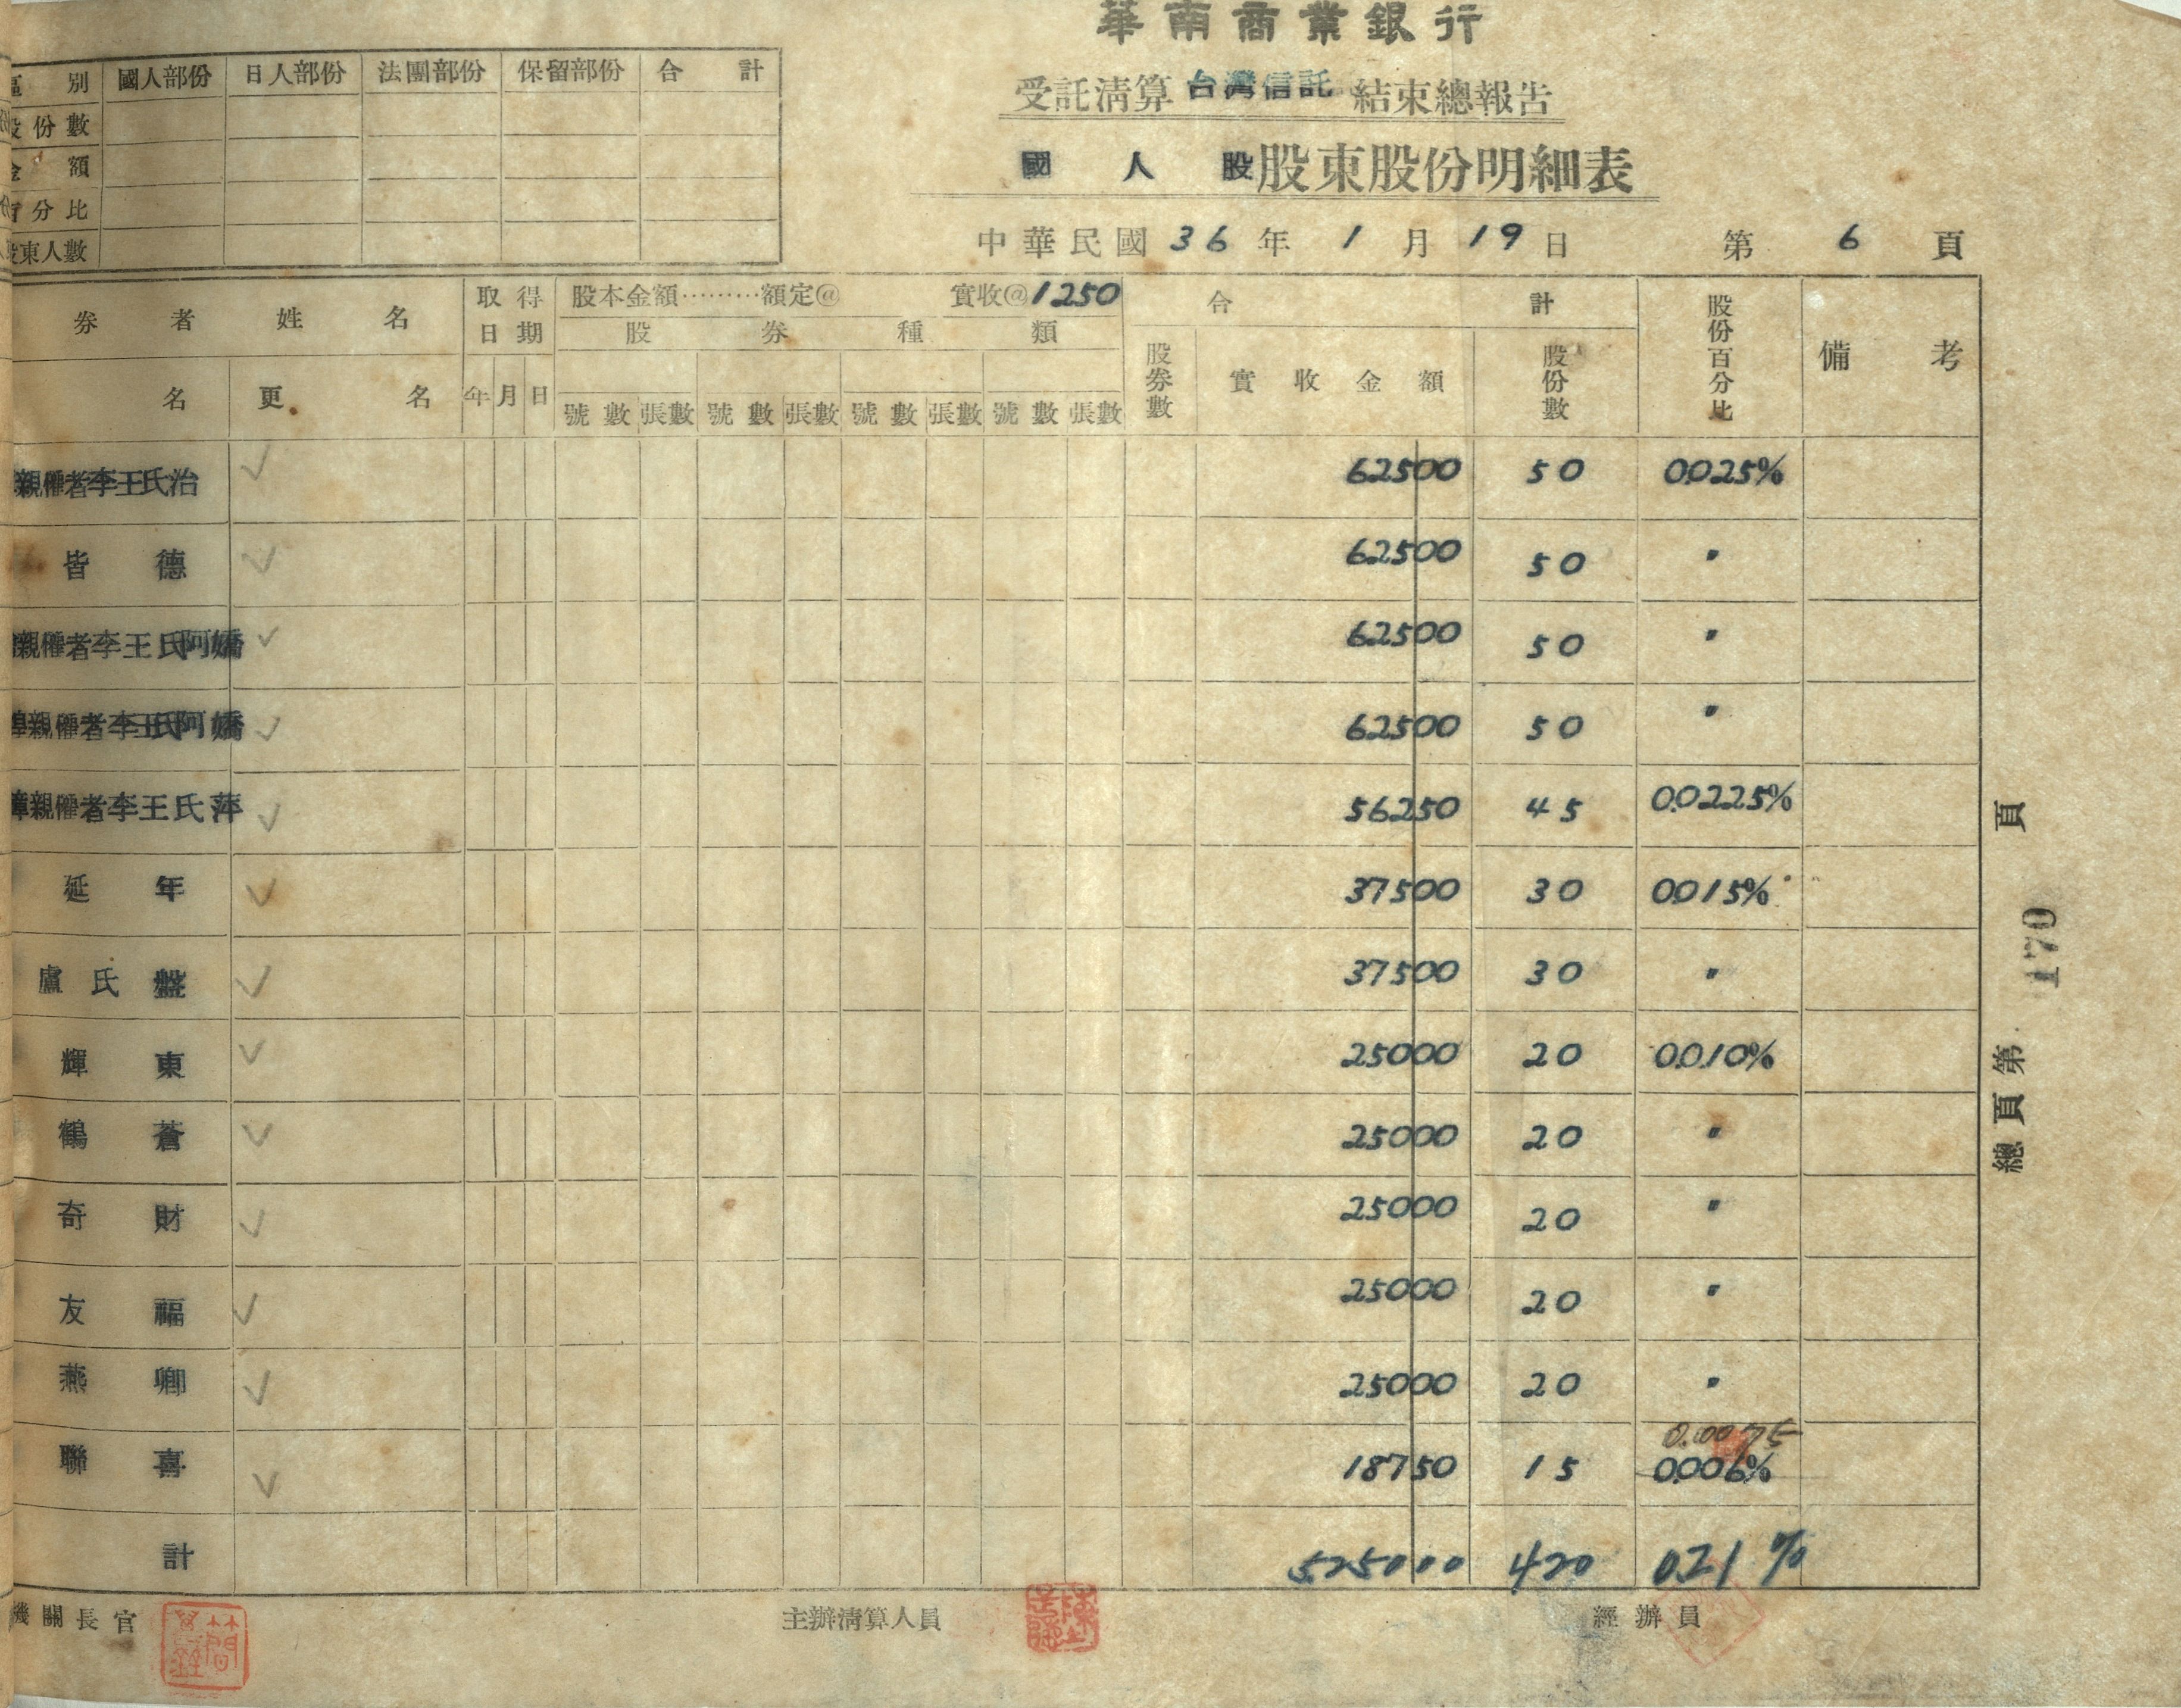 華南商業銀行
受託清算台灣信託結束總報告
國人股股東股份明細表
中華民國36年1月19日 第6頁
別 國人部份 日人部份 法團部份 保留部份 合計
份數
額
分比
股東人數
券者姓名 取得日期 股本金額………額定@ 實收@1250 合計 股份百分比 備考
股券種類
名 更名 年月日 號數 張數 號數 張數 號數 張數 號數 張數 股券數 實收金額 股份數
親權者李王氏治 ✓ 62500 50 0.025%
皆德 ✓ 62500 50 〃
親權者李王氏阿嬌 ✓ 62500 50 〃
親權者李王氏阿嬌 ✓ 62500 50 〃
親權者李王氏萍 ✓ 56250 45 0.0225%
延年 ✓ 37500 30 0.015%
盧氏盤 ✓ 37500 30 〃
輝東 ✓ 25000 20 0.010%
鶴蒼 ✓ 25000 20 〃
奇財 ✓ 25000 20 〃
友福 ✓ 25000 20 〃
燕卿 ✓ 25000 20 〃
0.0075
聯喜 ✓ 18750 15 0.006%
計 525000 420 0.21%
機關長官 主辦清算人員 經辦員
總頁第 170 頁